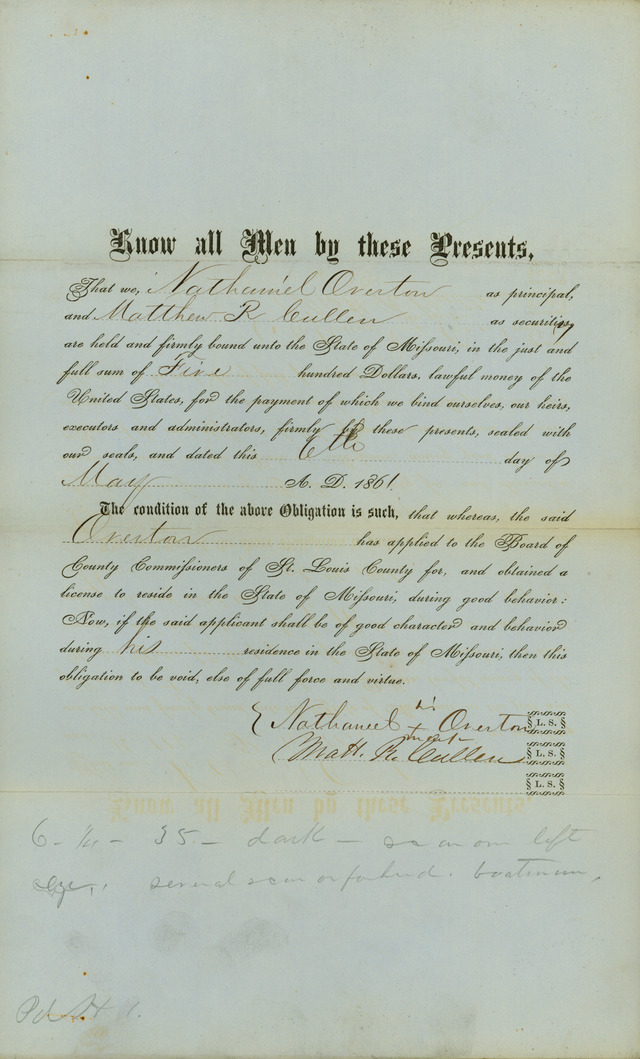 Know all Men by these Presents,
That we, Nathaniel Overton as principal,
and Matthew R Cullen as security
are held and firmly bound unto the State of Missouri, in the just and
full sum of Five hundred Dollars, lawful money of the
United States, for the payment of which we bind ourselves, our heirs,
executors and administrators, firmly by these presents, sealed with
our seals, and dated this day of
May A. D. 1861.
The condition of the above Obligation is such, that whereas, the said
Overton has applied to the Board of
County Commissioners of St. Louis County for, and obtained a
license to reside in the State of Missouri, during good behavior:
Now, if the said applicant shall be of good character and behavior
during his residence in the State of Missouri, then this
obligation to be void, else of full force and virtue.
his
Nathaniel x Overton L. S.
mark
Matt. R. Cullen L. S.
L. S.
35 - dark - scar on left
eye, several scars on forehead. boatman,
Pd